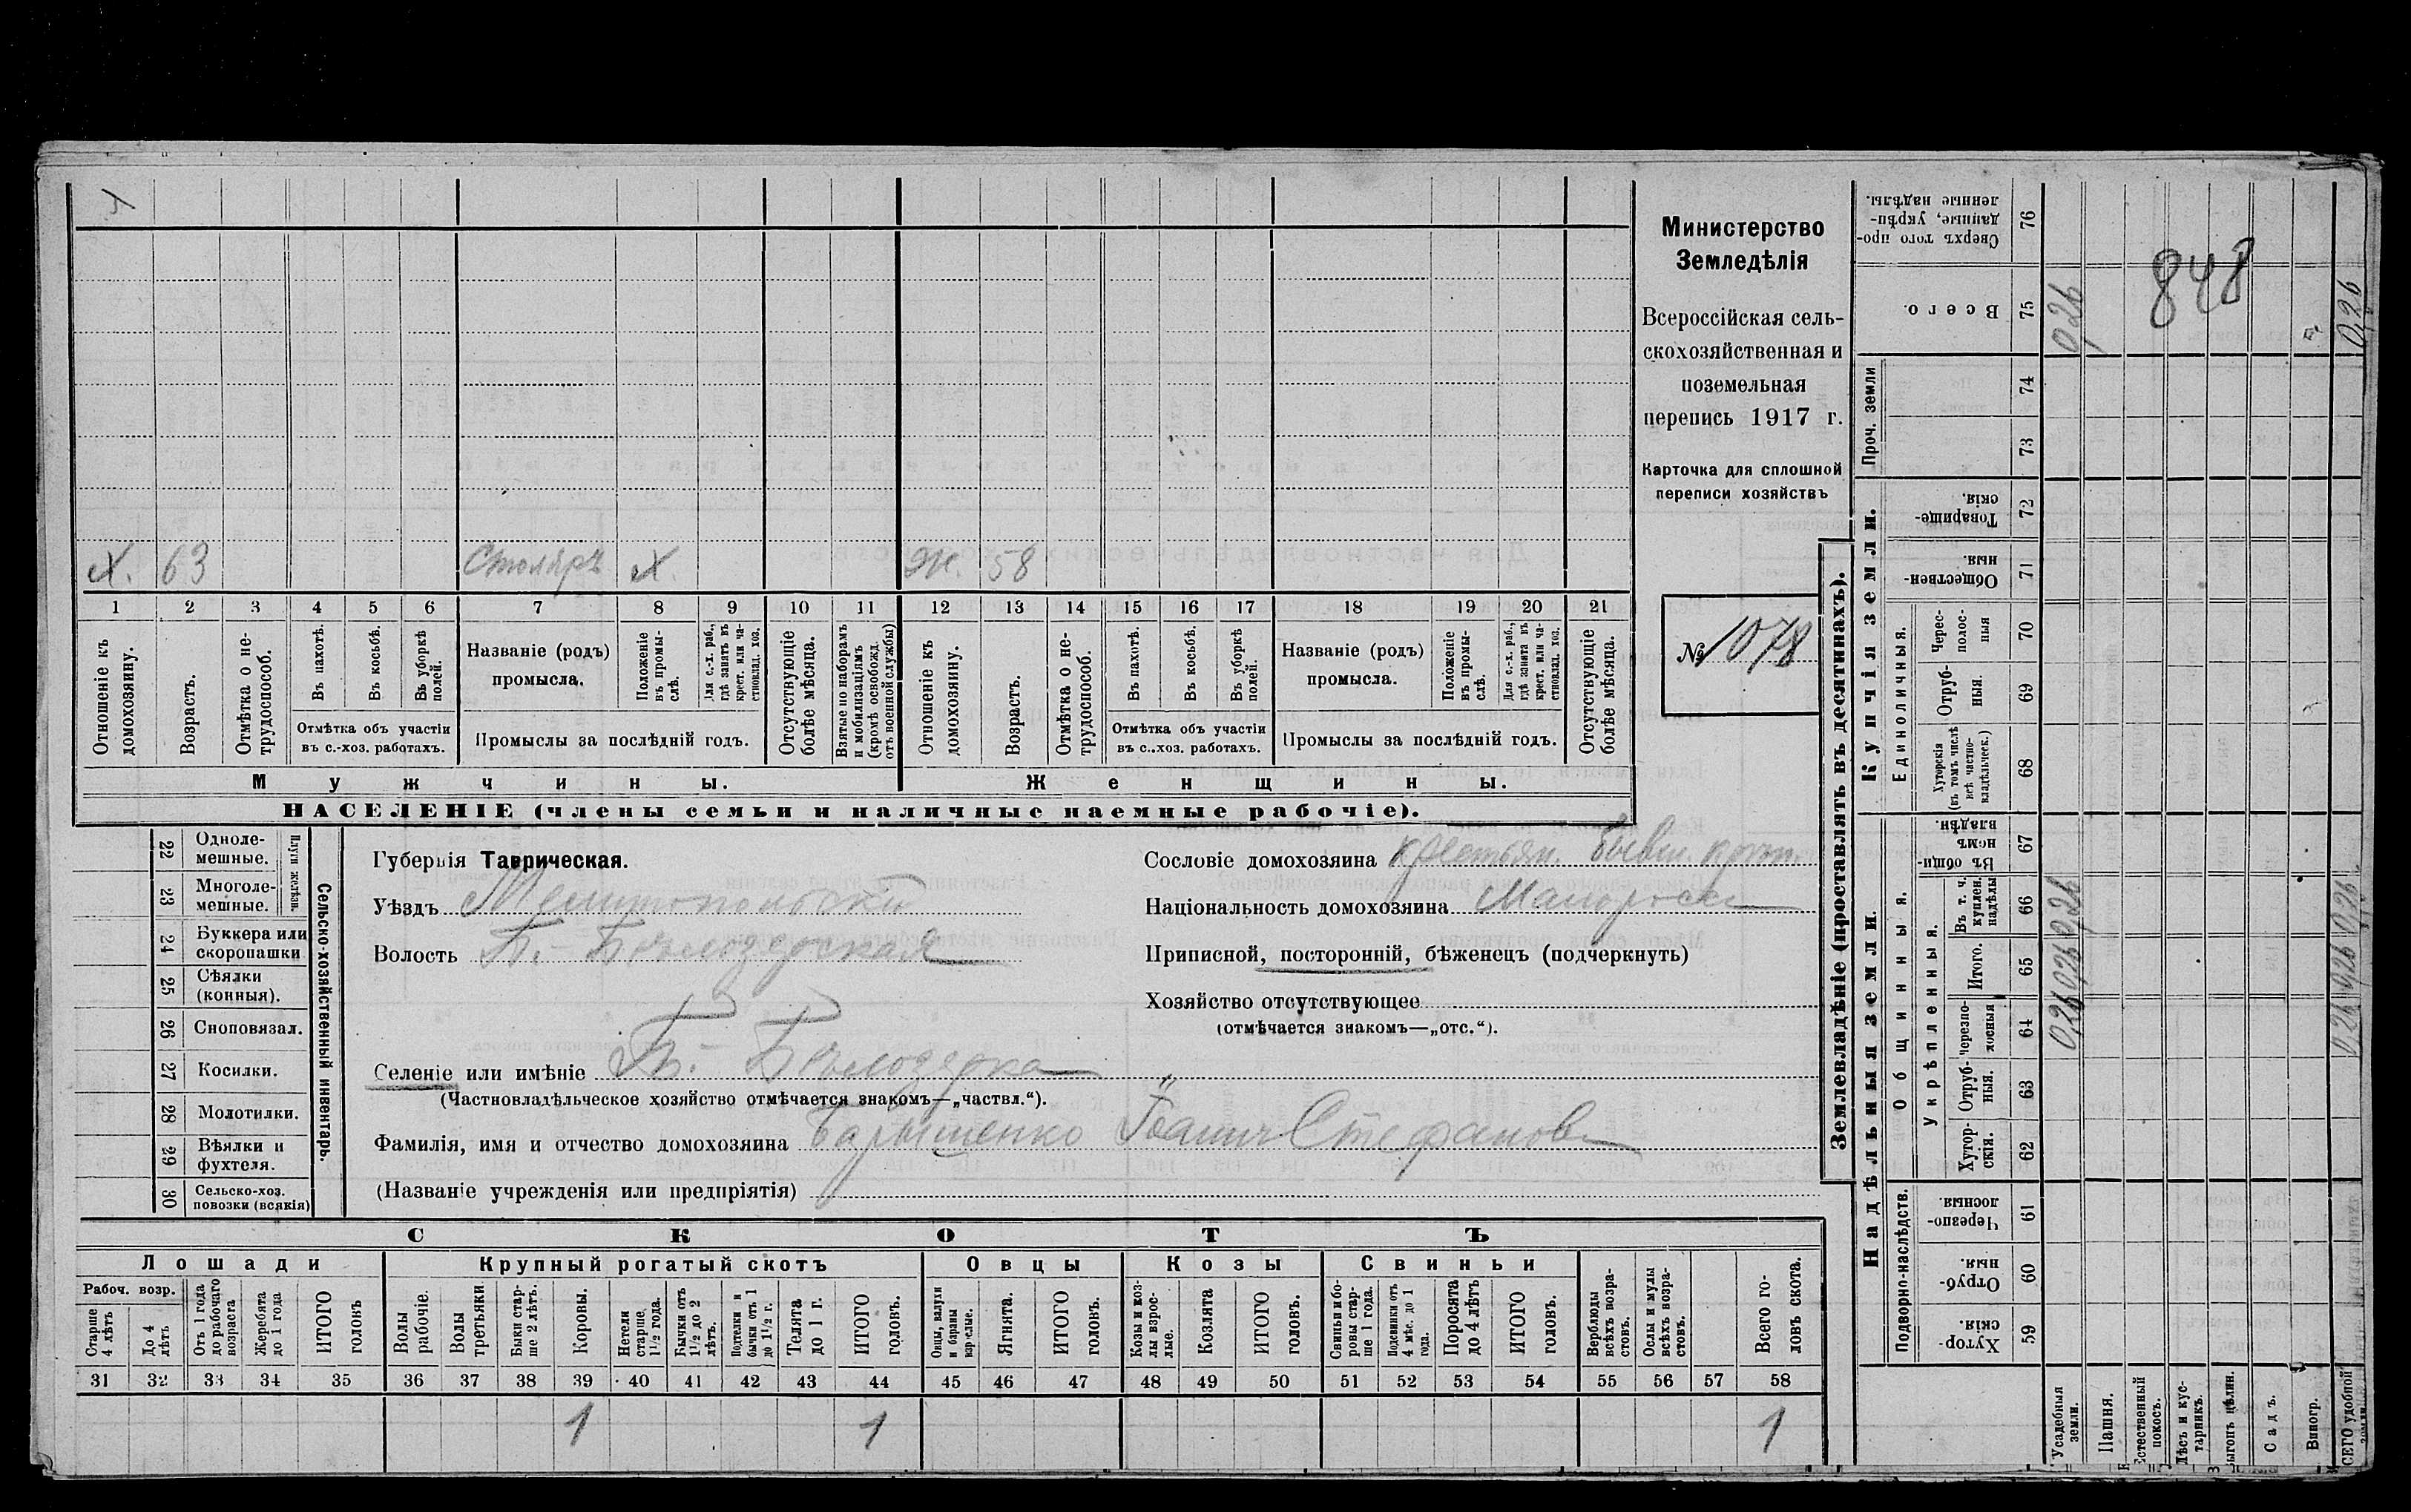 Х
Х. 63 Столяръ Х. Ж. 58
1 2 3 4 5 6 7 8 9 10 11 12 13 14 15 16 17 18 19 20 21
Отношеніе къ домохозяину.
Возрастъ.
Отмѣтка о нетрудоспособ.
Въ пахотѣ.
Въ косьбѣ.
Въ уборкѣ полей.
Отмѣтка объ участіи
въ с.-хоз. работахъ.
Названіе (родъ)
промысла.
Положеніе въ промыслѣ.
Для с.-х. раб., гдѣ занятъ въ крест. или частновлад. хоз.
Промыслы за послѣдній годъ.
Отсутствующіе болѣе мѣсяца.
Взятые по наборамъ и мобилизаціямъ (кромѣ освобожд. отъ военной службы)
Отношеніе къ домохозяину.
Возрастъ.
Отмѣтка о нетрудоспособ.
Въ пахотѣ.
Въ косьбѣ.
Въ уборкѣ полей.
Отмѣтка объ участіи
въ с.-хоз. работахъ.
Названіе (родъ)
промысла.
Положеніе въ промыслѣ.
Для с.-х. раб., гдѣ занята въ крест. или частновлад. хоз.
Промыслы за послѣдній годъ.
Отсутствующіе болѣе мѣсяца.
Мужчины. Женщины.
НАСЕЛЕНІЕ (члены семьи и наличные наемные рабочіе).
Министерство
Земледѣлія
Всероссійская сель-
скохозяйственная и
поземельная
перепись 1917 г.
Карточка для сплошной
переписи хозяйствъ
№ 1078
22 Одноле-
мешные.
23 Многоле-
мешные.
Плуги желѣзн.
24 Буккера или
скоропашки
25 Сѣялки
(конныя).
26 Сноповязал.
27 Косилки.
28 Молотилки.
29 Вѣялки и
фухтеля.
30 Сельско-хоз.
повозки (всякія)
Сельско-хозяйственный инвентарь.
Губернія Таврическая.
Уѣздъ Мелитопольскій
Волость Б.-Бѣлозерская
Селеніе или имѣніе Б.-Бѣлозерка "
(Частновладѣльческое хозяйство отмѣчается знакомъ—„частвл.“).
Фамилія, имя и отчество домохозяина Барышенко Иванъ Стефанов
(Названіе учрежденія или предпріятія)
Сословіе домохозяина крестьян. бывш.
Національность домохозяина Малоросс
Приписной, посторонній, бѣженецъ (подчеркнуть)
Хозяйство отсутствующее
(отмѣчается знакомъ—„отс.“).
СКОТЪ
Лошади Крупный рогатый скотъ Овцы Козы Свиньи
Рабоч. возр.
Старше 4 лѣтъ
До 4 лѣтъ
Отъ 1 года до рабочаго возраста
Жеребята до 1 года
ИТОГО головъ
Волы рабочіе.
Волы третьяки
Быки старше 2 лѣтъ.
Коровы.
Нетели старше 1 1/2 года.
Бычки отъ 1 1/2 до 2 лѣтъ.
Подтелки и бычки отъ 1 до 1 1/2 г.
Телята до 1 г.
ИТОГО головъ.
Овцы, валухи и бараны взрослые.
Ягнята.
ИТОГО головъ.
Козы и козлы взрослые.
Козлята
ИТОГО головъ.
Свиньи и боровы старше 1 года.
Подсвинки отъ 4 мѣс. до 1 года.
Поросята до 4 лѣтъ
ИТОГО головъ.
Верблюды всѣхъ возрастовъ.
Ослы и мулы всѣхъ возрастовъ.
Всего головъ скота.
31 32 33 34 35 36 37 38 39 40 41 42 43 44 45 46 47 48 49 50 51 52 53 54 55 56 57 58
1 1 1
Землевладѣніе (проставлять въ десятинахъ).
Купчія земли.
Надѣльныя земли.
Проч. земли
Единоличныя.
Общинныя.
Укрѣпленныя.
Подворно-наслѣдств.
Сверхъ того проданные, укрѣпленные надѣлы. 76
Всего. 75
74
73
Товарищескія. 72
Общественныя. 71
Черес-полос-ныя 70
Отруб-ныя. 69
Хуторскія (въ томъ числѣ всѣ частно-владѣльческ.) 68
Въ общинномъ владѣн. 67
Въ т. ч. куплен. надѣлы 66
Итого. 65
Черезпо-лосныя 64
Отруб-ныя. 63
Хутор-скія. 62
Черезпо-лосныя. 61
Отруб-ныя. 60
Хутор-скія 59
Усадебныя земли.
Пашня.
Естественный покосъ.
Лѣсъ и кустарникъ.
Выгонъ цѣлин.
Садъ.
Виногр.
ВСЕГО удобной земли
0,26 0,26 0,26 0,26
848
0,26 0,26 0,26 0,26